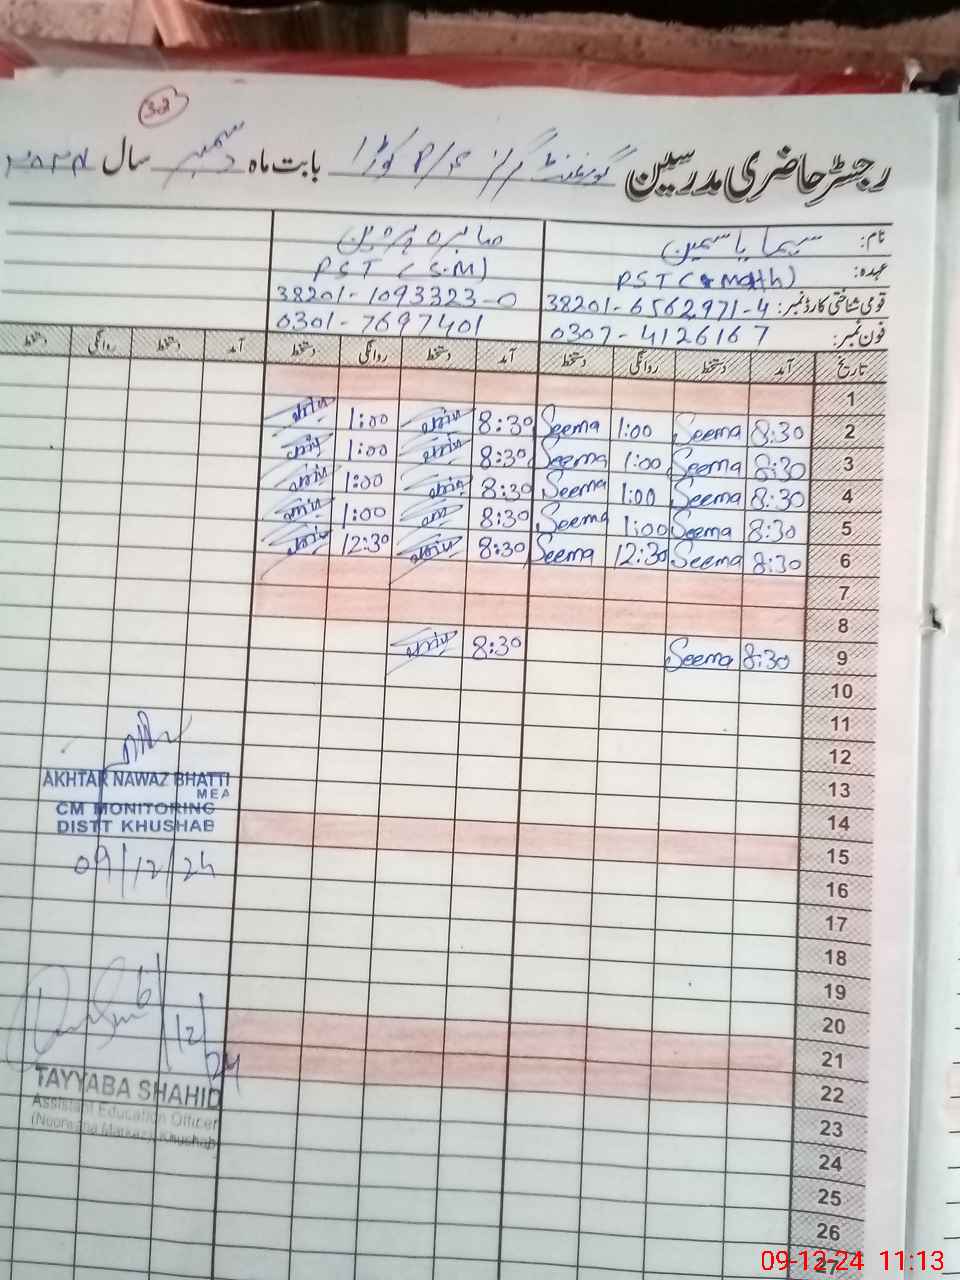 32
رجسٹر حاضری مدرسین گورنمنٹ گرلز P/S کوڑا بابت ماہ دسمبر سال ۲۰۲۴
نام: سیما یاسمین صابرہ پروین
عہدہ: PST (Math) PST (S.M)
قومی شناختی کارڈ نمبر: 38201-6562971-4 38201-1093323-0
فون نمبر: 0307-4126167 0301-7697401
تاریخ آمد دستخط روانگی دستخط آمد دستخط روانگی دستخط آمد دستخط روانگی دستخط
1
2 8:30 Seema 1:00 Seema 8:30 1:00
3 8:30 Seema 1:00 Seema 8:30 1:00
4 8:30 Seema 1:00 Seema 8:30 1:00
5 8:30 Seema 1:00 Seema 8:30 1:00
6 8:30 Seema 12:30 Seema 8:30 12:30
7
8
9 8:30 Seema 8:30
10
11
12
13
14
15
16
17
18
19
20
21
22
23
24
25
26
27
AKHTAR NAWAZ BHATTI
MEA
CM MONITORING
DISTT KHUSHAB
09/12/24
6/12/24
TAYYABA SHAHID
Assistant Education Officer
Khushab
09-12-24 11:13